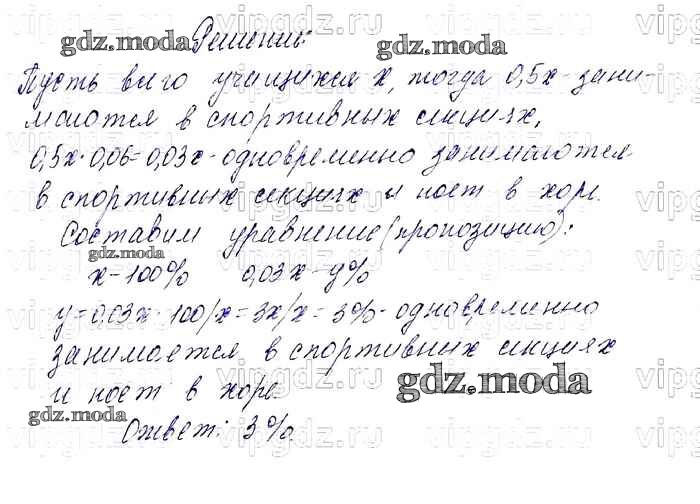 Решение:
Пусть всего учащихся x, тогда 0,5x - зани-
маются в спортивных секциях,
0,5x·0,06=0,03x - одновременно занимаются
в спортивных секциях и поет в хоре.
Составим уравнение (пропозицию):
x - 100% 0,03x - y%
y = 0,03x·100/x = 3x/x = 3% - одновременно
занимается в спортивных секциях
и поет в хоре.
Ответ: 3%
gdz.moda
gdz.moda
gdz.moda
gdz.moda
gdz.moda
vipgdz.ru